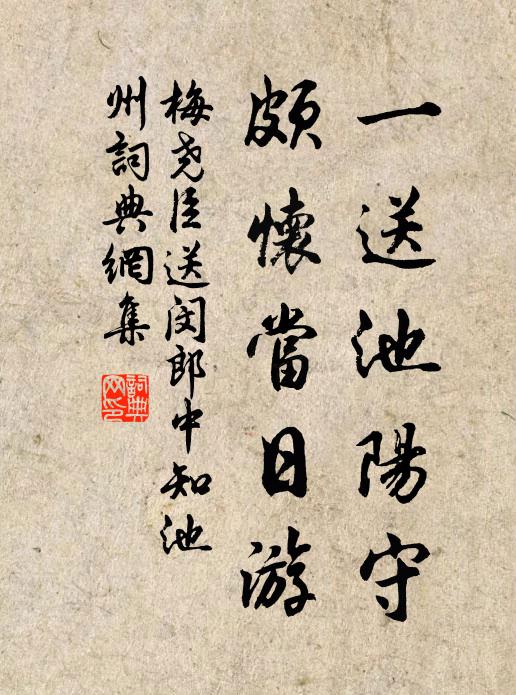 一送池陽守
頗懷當日游
梅尧臣送闵郎中知池
州詞典網集
詞典网印